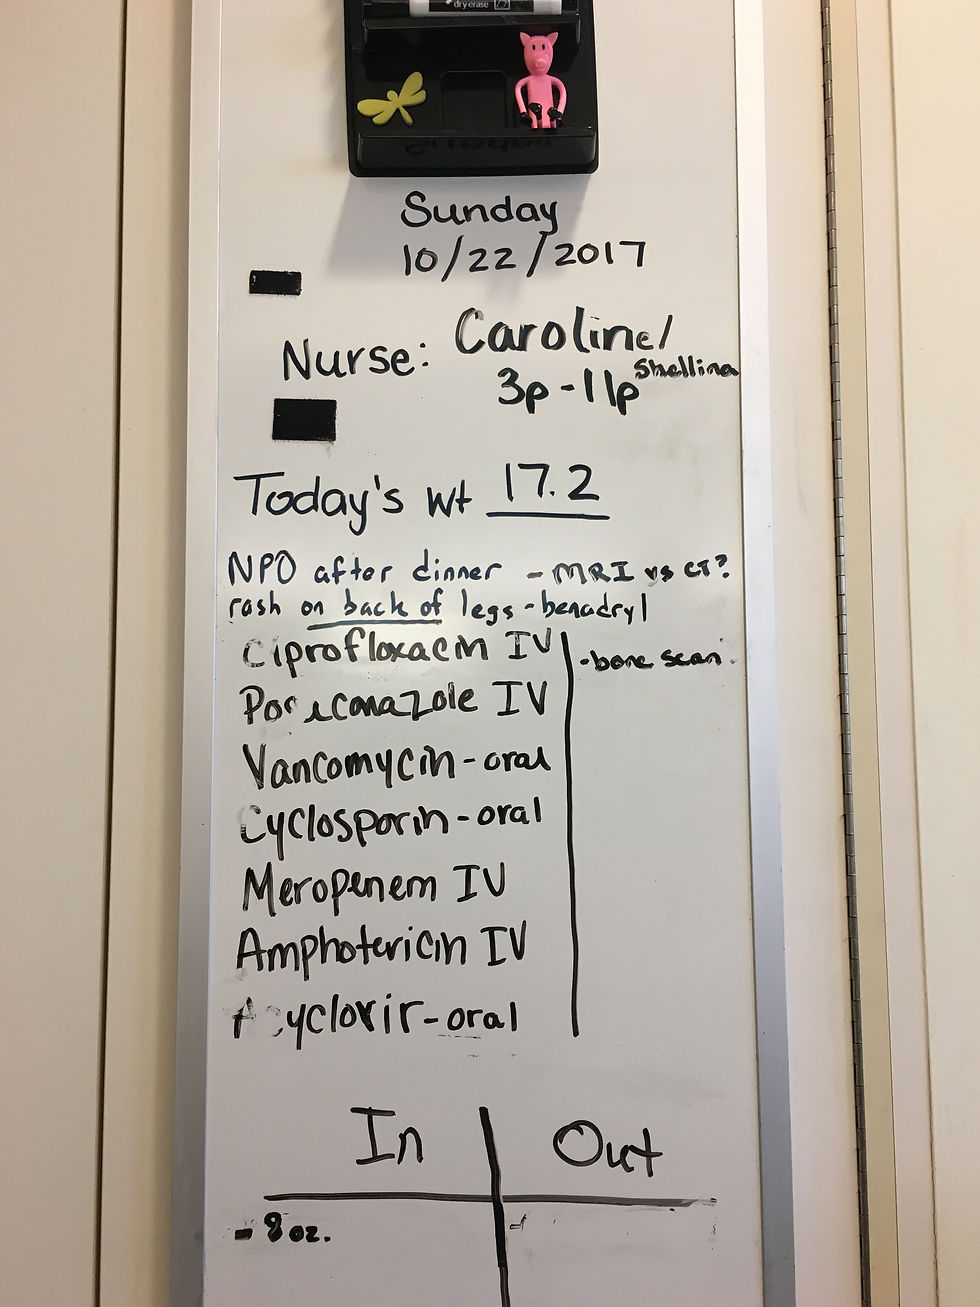 dry erase
Sunday
10/22/2017
Nurse: Caroline/
Shellina
3p-11p
Today's wt 17.2
NPO after dinner - MRI vs CT?
rash on back of legs - benadryl
Ciprofloxacin IV
- bone scan
Posiconazole IV
Vancomycin - oral
Cyclosporin - oral
Meropenem IV
Amphotericin IV
Acyclovir - oral
In Out
- 8 oz.